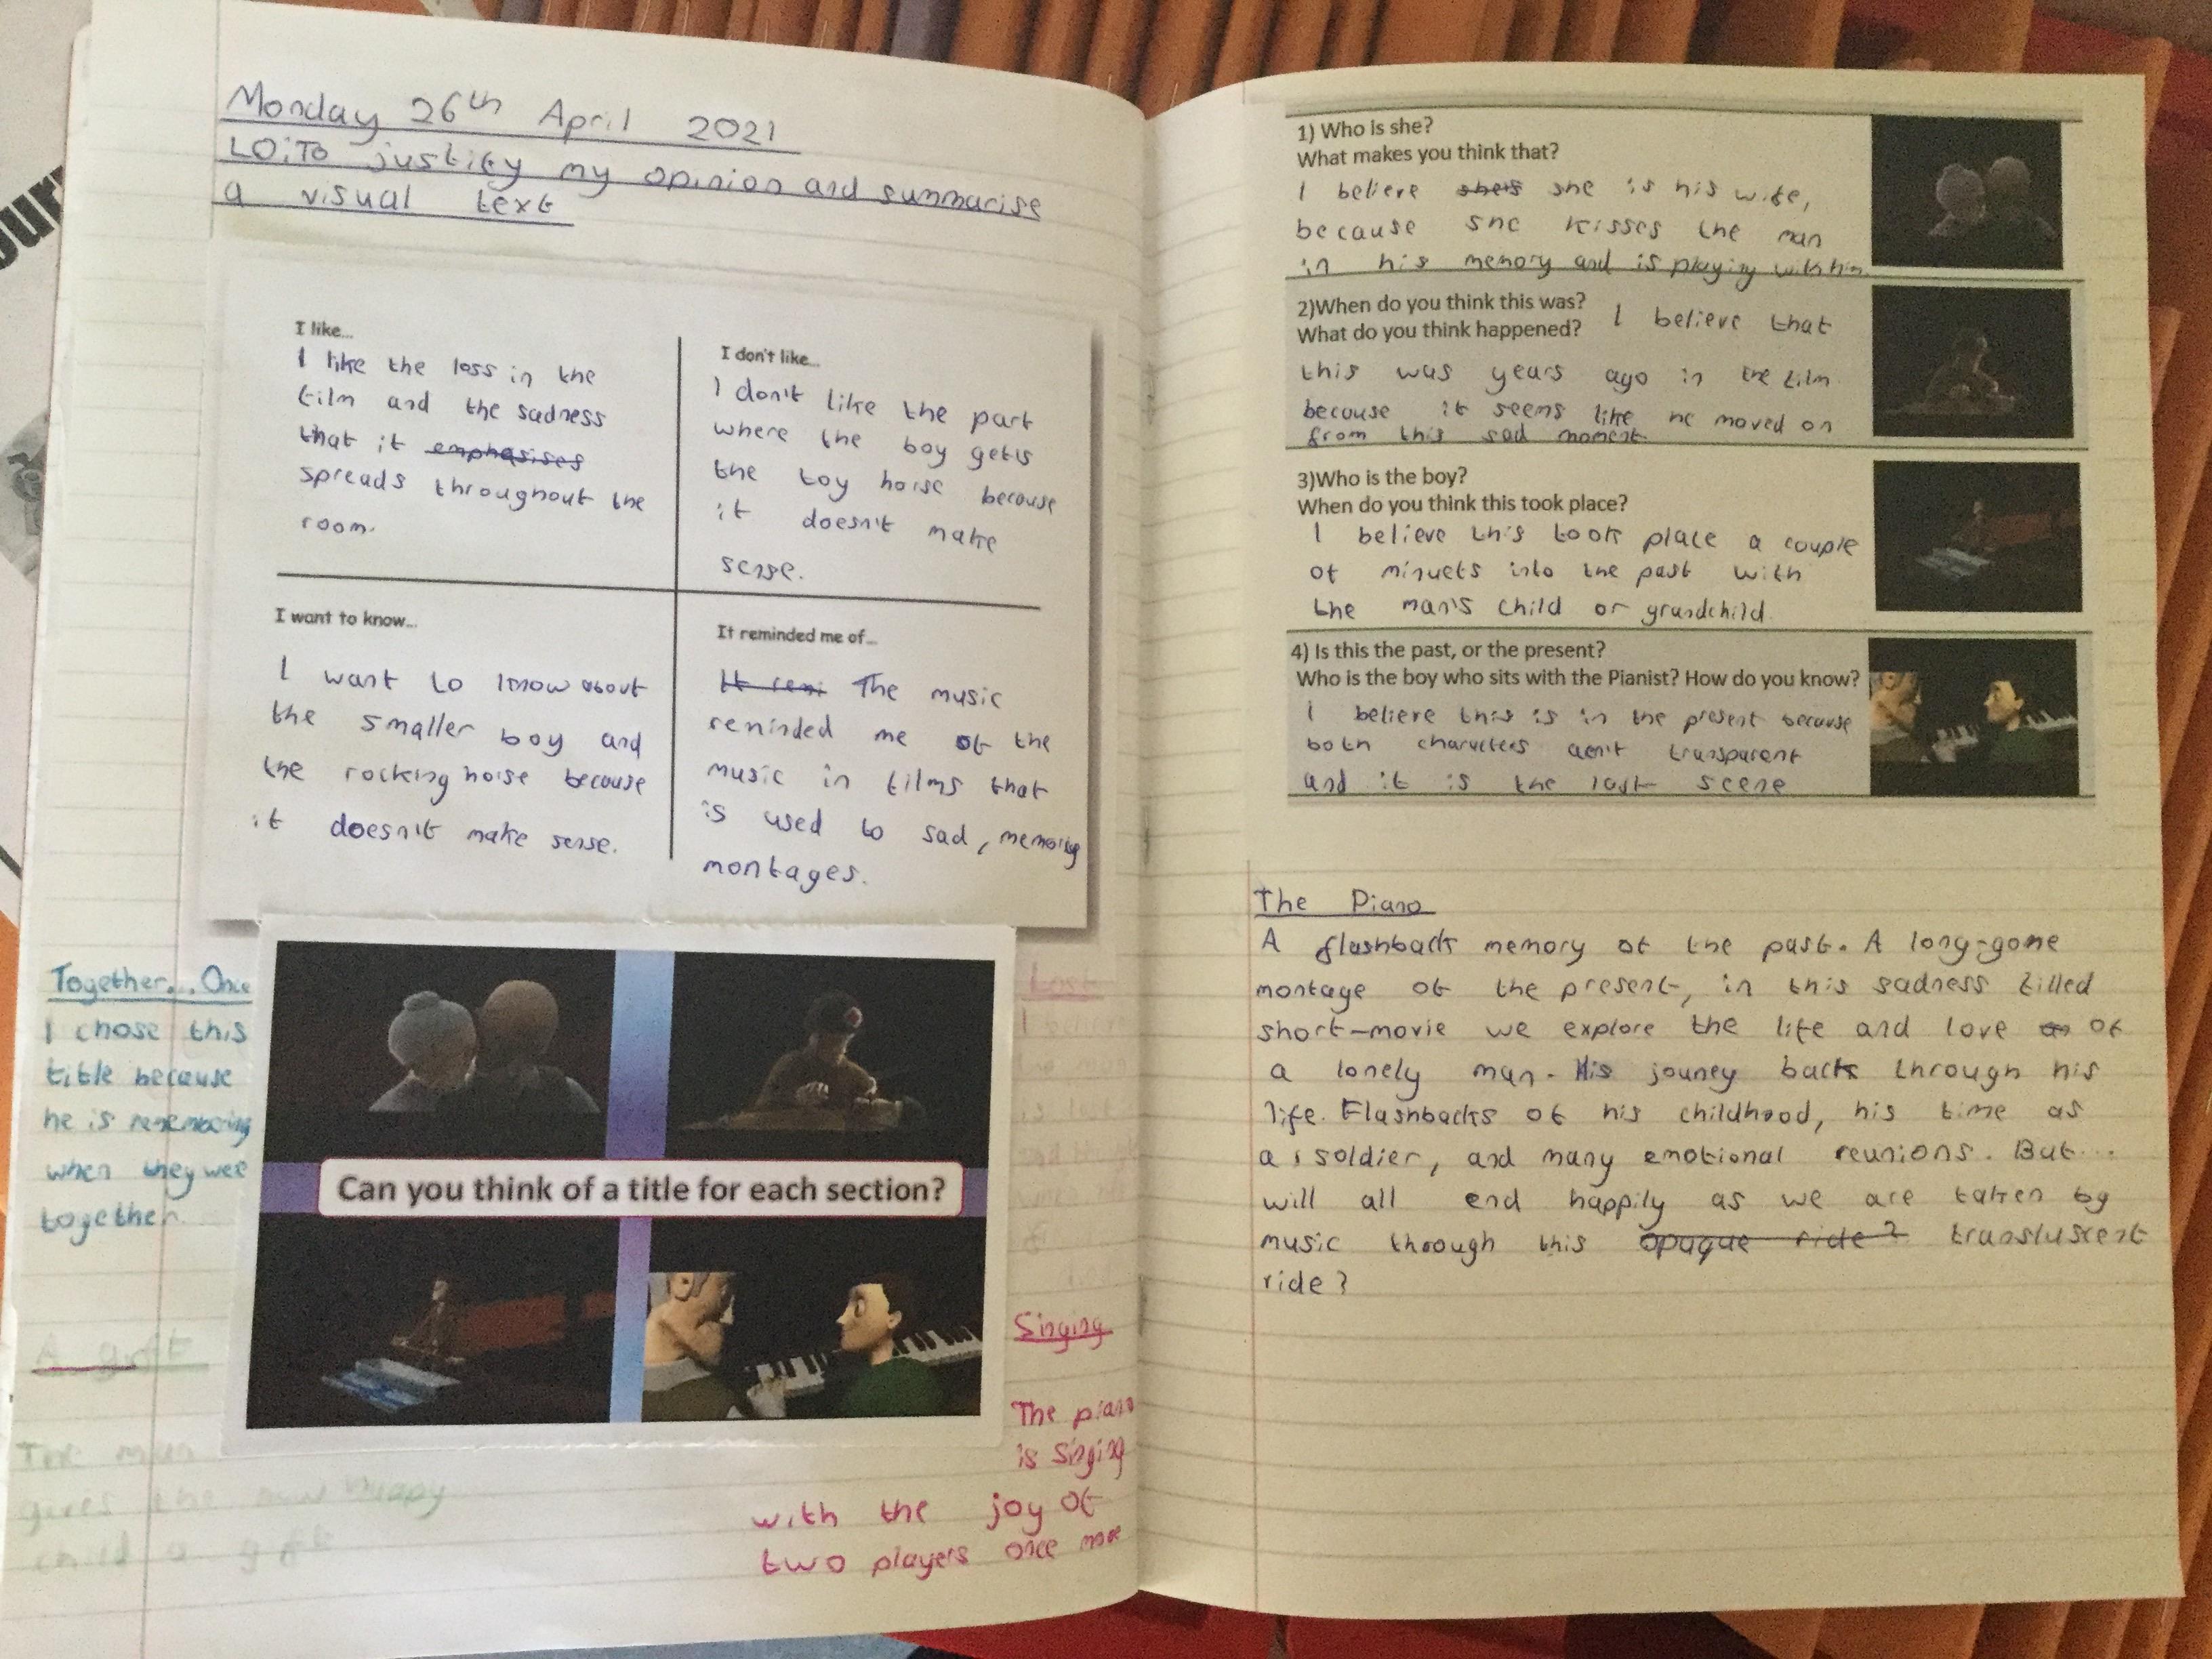 our
Monday 26th April 2021
LO:To justify my opinion and summarise
a visual text
I like...
I like the loss in the
film and the sadness
that it emphasises
spreads throughout the
room.
I don't like...
I don't like the part
where the boy gets
the toy horse because
it doesn't make
sense.
I want to know...
I want to know about
the smaller boy and
the rocking horse because
it doesn't make sense.
It reminded me of...
It remi The music
reminded me of the
music in films that
is used to sad, memory
montages.
Together... Once
I chose this
title because
he is remembering
when they were
together.
Can you think of a title for each section?
Lost
A gift
The man
gives the now happy
child a gift
Singing
The piano
is singing
with the joy of
two players once more
1) Who is she?
What makes you think that?
I believe shers she is his wife,
because she kisses the man
in his memory and is playing with him.
2)When do you think this was?
What do you think happened? I believe that
this was years ago in the film
because it seems like he moved on
from this sad moment
3)Who is the boy?
When do you think this took place?
I believe this took place a couple
of minuets into the past with
the man's child or grandchild.
4) Is this the past, or the present?
Who is the boy who sits with the Pianist? How do you know?
I believe this is in the present because
both characters aren't transparent
and it is the last scene
The Piano
A flashback memory of the past. A long-gone
montage of the present, in this sadness filled
short-movie we explore the life and love of
a lonely man. His jouney back through his
life. Flashbacks of his childhood, his time as
a soldier, and many emotional reunions. But...
will all end happily as we are taken by
music through this opaque ride? transluscent
ride?